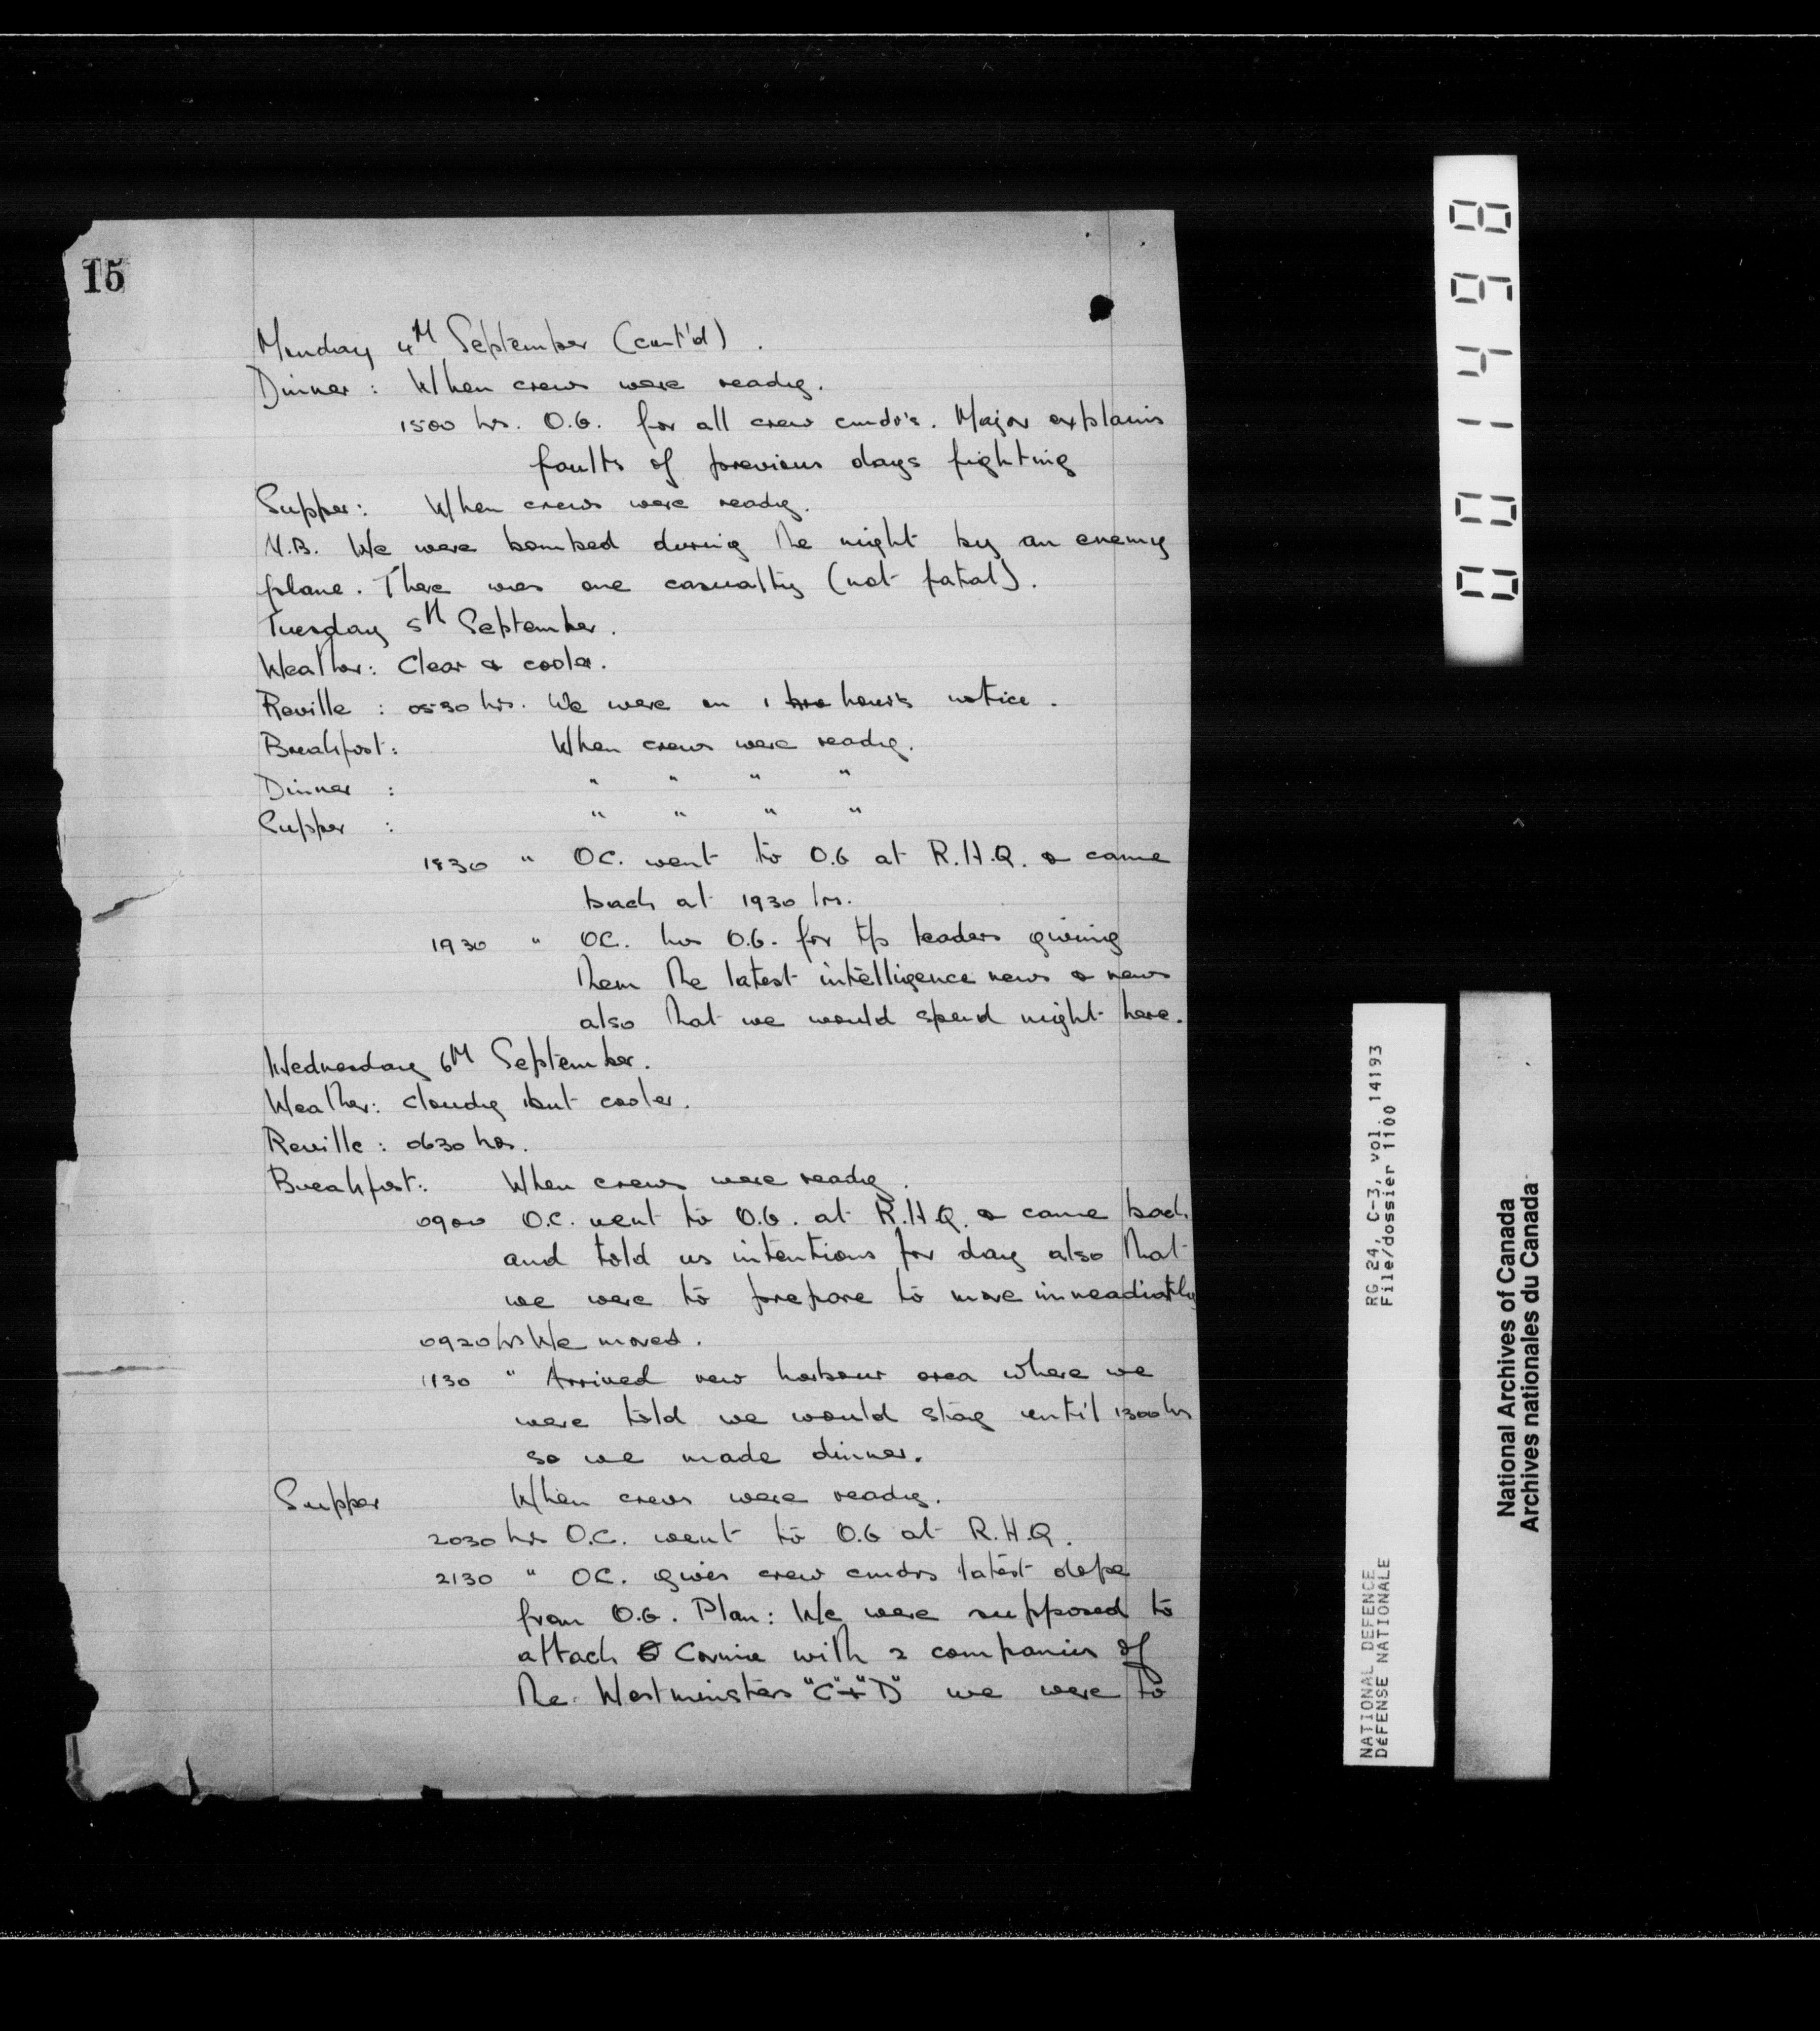 15
Monday 4th September (cont'd).
Dinner: When crews were ready.
1500 hrs. O.G. for all crew cmdr's. Major explains
faults of previous days fighting
Supper: When crews were ready.
N.B. We were bombed during the night by an enemy
plane. There was one casualty (not fatal).
Tuesday 5th September.
Weather: Clear & cooler.
Reville: 0530 hrs. We were on 1 hour's notice.
Breakfast: When crews were ready.
Dinner : " " " "
Supper : " " " "
1830 " OC. went to O.G at R.H.Q. & came
back at 1930 hrs.
1930 " OC. has O.G. for tp leaders giving
them the latest intelligence news & news
also that we would spend night here.
Wednesday 6th September.
Weather: cloudy but cooler.
Reville: 0630 hrs.
Breakfast: When crews were ready.
0900 O.C. went to O.G. at R.H.Q. & came back
and told us intentions for day also that
we were to prepare to move immeadiatly
0920 hrs We moved.
1130 " Arrived new harbour area where we
were told we would stay until 1300 hrs
so we made dinner.
Supper When crews were ready.
2030 hrs O.C. went to O.G at R.H.Q.
2130 " OC. gives crew cmdrs latest dope
from O.G. Plan: We were supposed to
attack with 2 companies of
the Westminsters "C" + "D" we were to
00001498
RG 24, C-3, vol. 14193
File/dossier 1100
NATIONAL DEFENCE
DÉFENSE NATIONALE
National Archives of Canada
Archives nationales du Canada